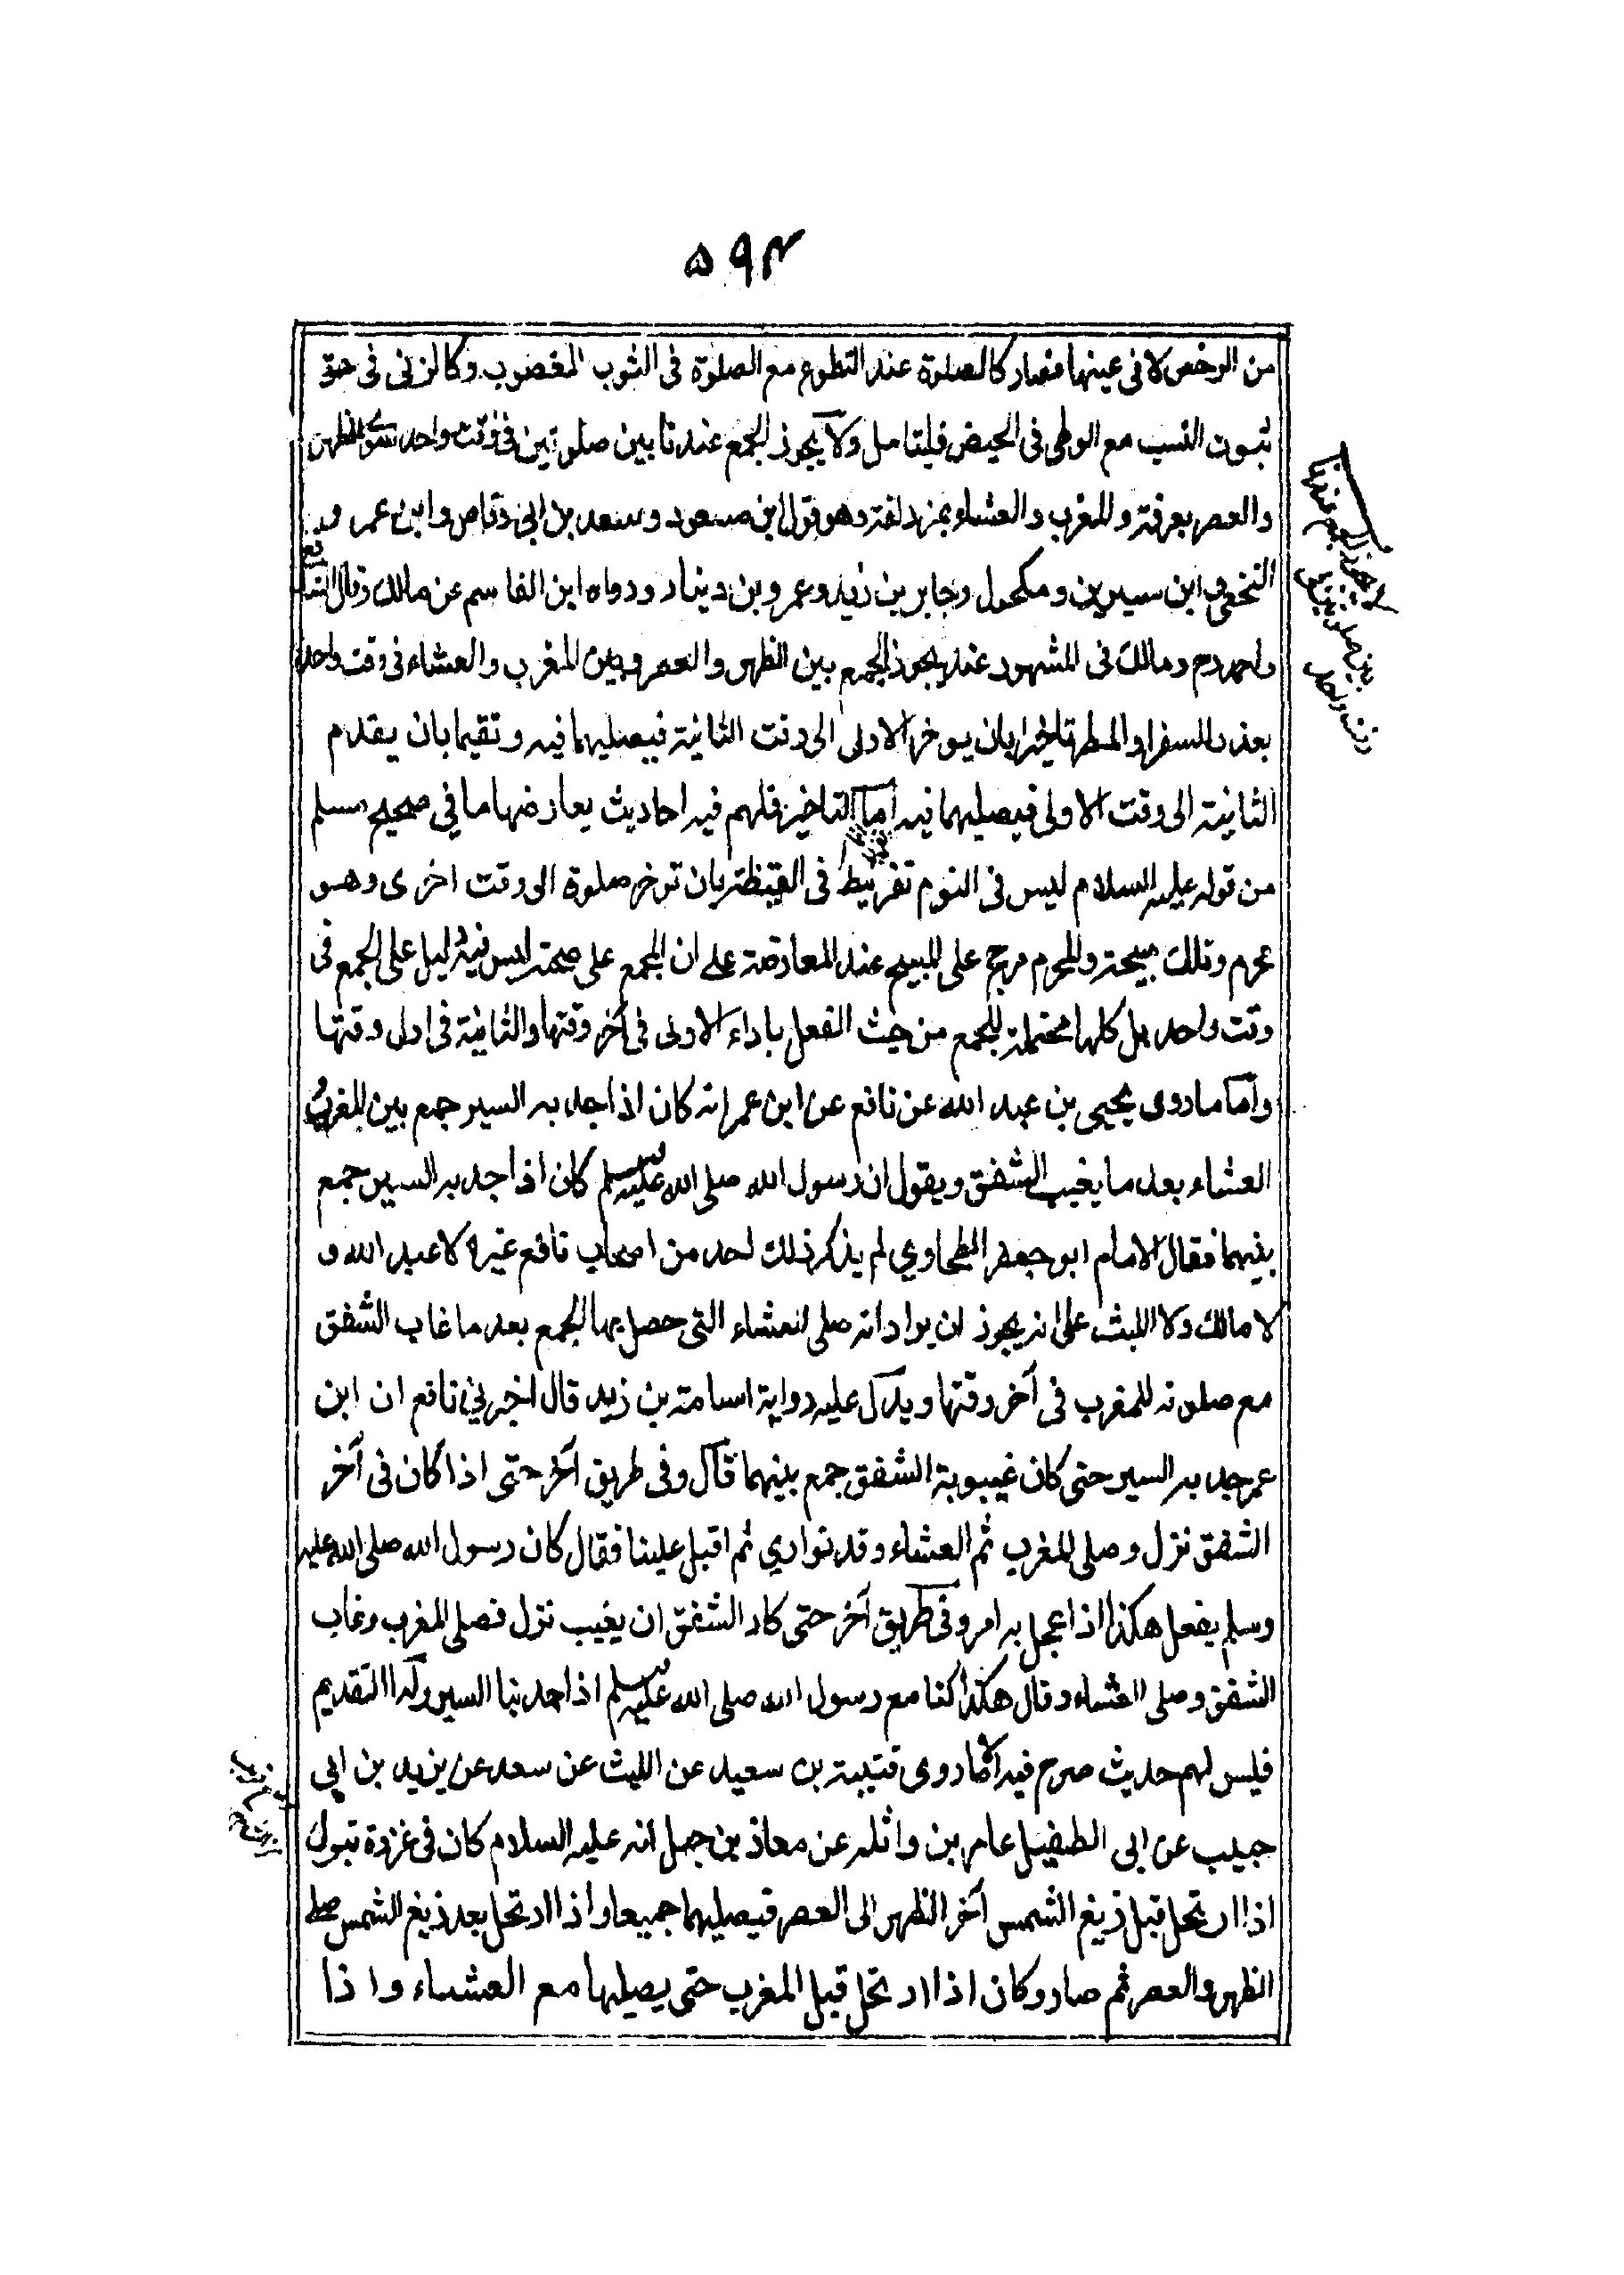 ۵۹۴
من الرخص لا فى عينها فصار كالصلوة عند التطوع مع الصلوة فى الثوب المغصوب وكالزنى فى حق
ثبوت النسب مع الوطى فى الحيض فليتامل ولا يجوز الجمع عندنا بين صلوتين فى وقت واحد سوى الظهر
والعصر بعرفة والمغرب والعشاء بمزدلفة وهو قول ابن مسعود وسعد بن ابى وقاص وابن عمر و
النخعى وابن سيرين ومكحول وجابر بن زيد وعمرو بن دينار ورواه ابن القاسم عن مالك وقال الشافعى
واحمد رح ومالك فى المشهور عنه يجوز الجمع بين الظهر والعصر وبين المغرب والعشاء فى وقت واحد
بعذر السفر او المطر تاخيرا بان يوخر الاولى الى وقت الثانية فيصليهما فيه وتقيما بان يقدم
الثانية الى وقت الاولى فيصليهما فيه اما التاخير فلهم فيه احاديث يعارضها ما في صحيح مسلم
من قوله عليه السلام ليس فى النوم تفريط فى اليقظة بان توخر صلوة الى وقت اخرى وهو
محرم وتلك مبيحة والمحرم مرجح على المبيح عند المعارضة على ان الجمع على صحته ليس فيه دليل على الجمع فى
وقت واحد بل كلها محتملة للجمع من حيث الفعل باداء الاولى فى آخر وقتها والثانية فى اول وقتها
واما ما روى يحيى بن عبد الله عن نافع عن ابن عمر انه كان اذا جد به السير جمع بين المغرب و
العشاء بعد ما يغيب الشفق ويقول ان رسول الله صلى الله عليه وسلم كان اذا جد به السير جمع
بينهما فقال الامام ابو جعفر الطحاوي لم يذكر ذلك احد من اصحاب نافع غيره لا عبد الله و
لا مالك ولا الليث على انه يجوز ان يراد انه صلى العشاء التى حصل بها الجمع بعد ما غاب الشفق
مع صلوته للمغرب فى آخر وقتها ويدل عليه رواية اسامة بن زيد قال اخبرني نافع ان ابن
عمر جد به السير حتى كان غيبوبة الشفق جمع بينهما قال وفى طريق آخر حتى اذا كان فى آخر
الشفق نزل وصلى المغرب ثم العشاء وقد توارى ثم اقبل علينا فقال كان رسول الله صلى الله عليه
وسلم يفعل هكذا اذا عجل به امر وفى طريق آخر حتى كاد الشفق ان يغيب نزل فصلى المغرب وغاب
الشفق وصلى العشاء وقال هكذا كنا مع رسول الله صلى الله عليه وسلم اذا جد بنا السير واما التقديم
فليس لهم حديث صرح فيه الا ما روى قتيبة بن سعيد عن الليث عن سعد عن يزيد بن ابى
حبيب عن ابى الطفيل عامر بن واثلة عن معاذ بن جبل انه عليه السلام كان فى غزوة تبوك
اذا ارتحل قبل زيغ الشمس آخر الظهر الى العصر فيصليهما جميعا واذا ارتحل بعد زيغ الشمس صلى
الظهر والعصر ثم صار وكان اذا ارتحل قبل المغرب حتى يصليها مع العشاء واذا
لا يجوز الجمع عندنا
بين صلوتين فى
وقت واحد